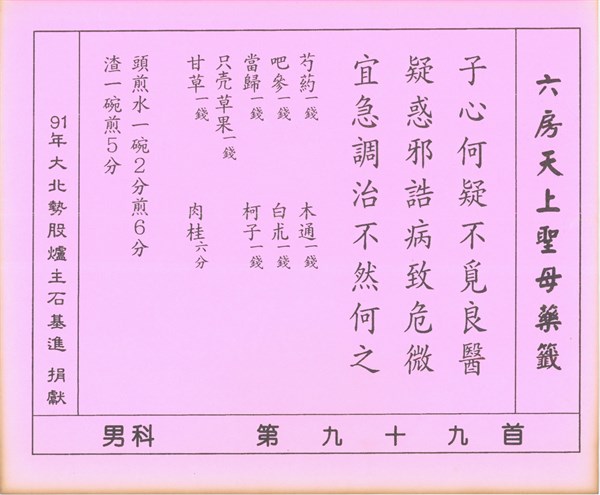 六房天上聖母藥籤
子心何疑不覓良醫
疑惑邪誥病致危微
宜急調治不然何之
芍葯一錢 木通一錢
吧參一錢 白朮一錢
當歸一錢 柯子一錢
只壳草果一錢
甘草一錢 肉桂六分
頭煎水一碗2分煎6分
渣一碗煎5分
91年大北勢股爐主石基進 捐獻
男科 第九十九首